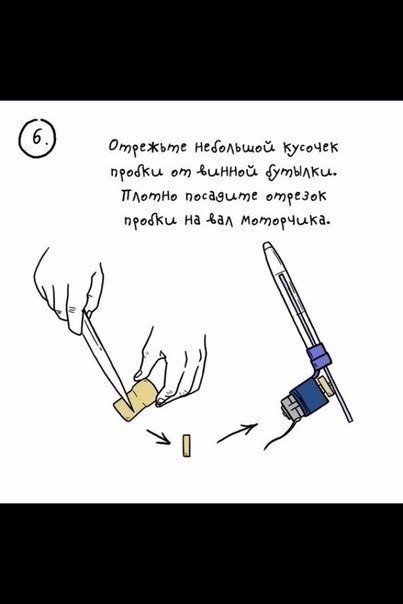 6.
Отрежьте небольшой кусочек
пробки от винной бутылки.
Плотно посадите отрезок
пробки на вал моторчика.